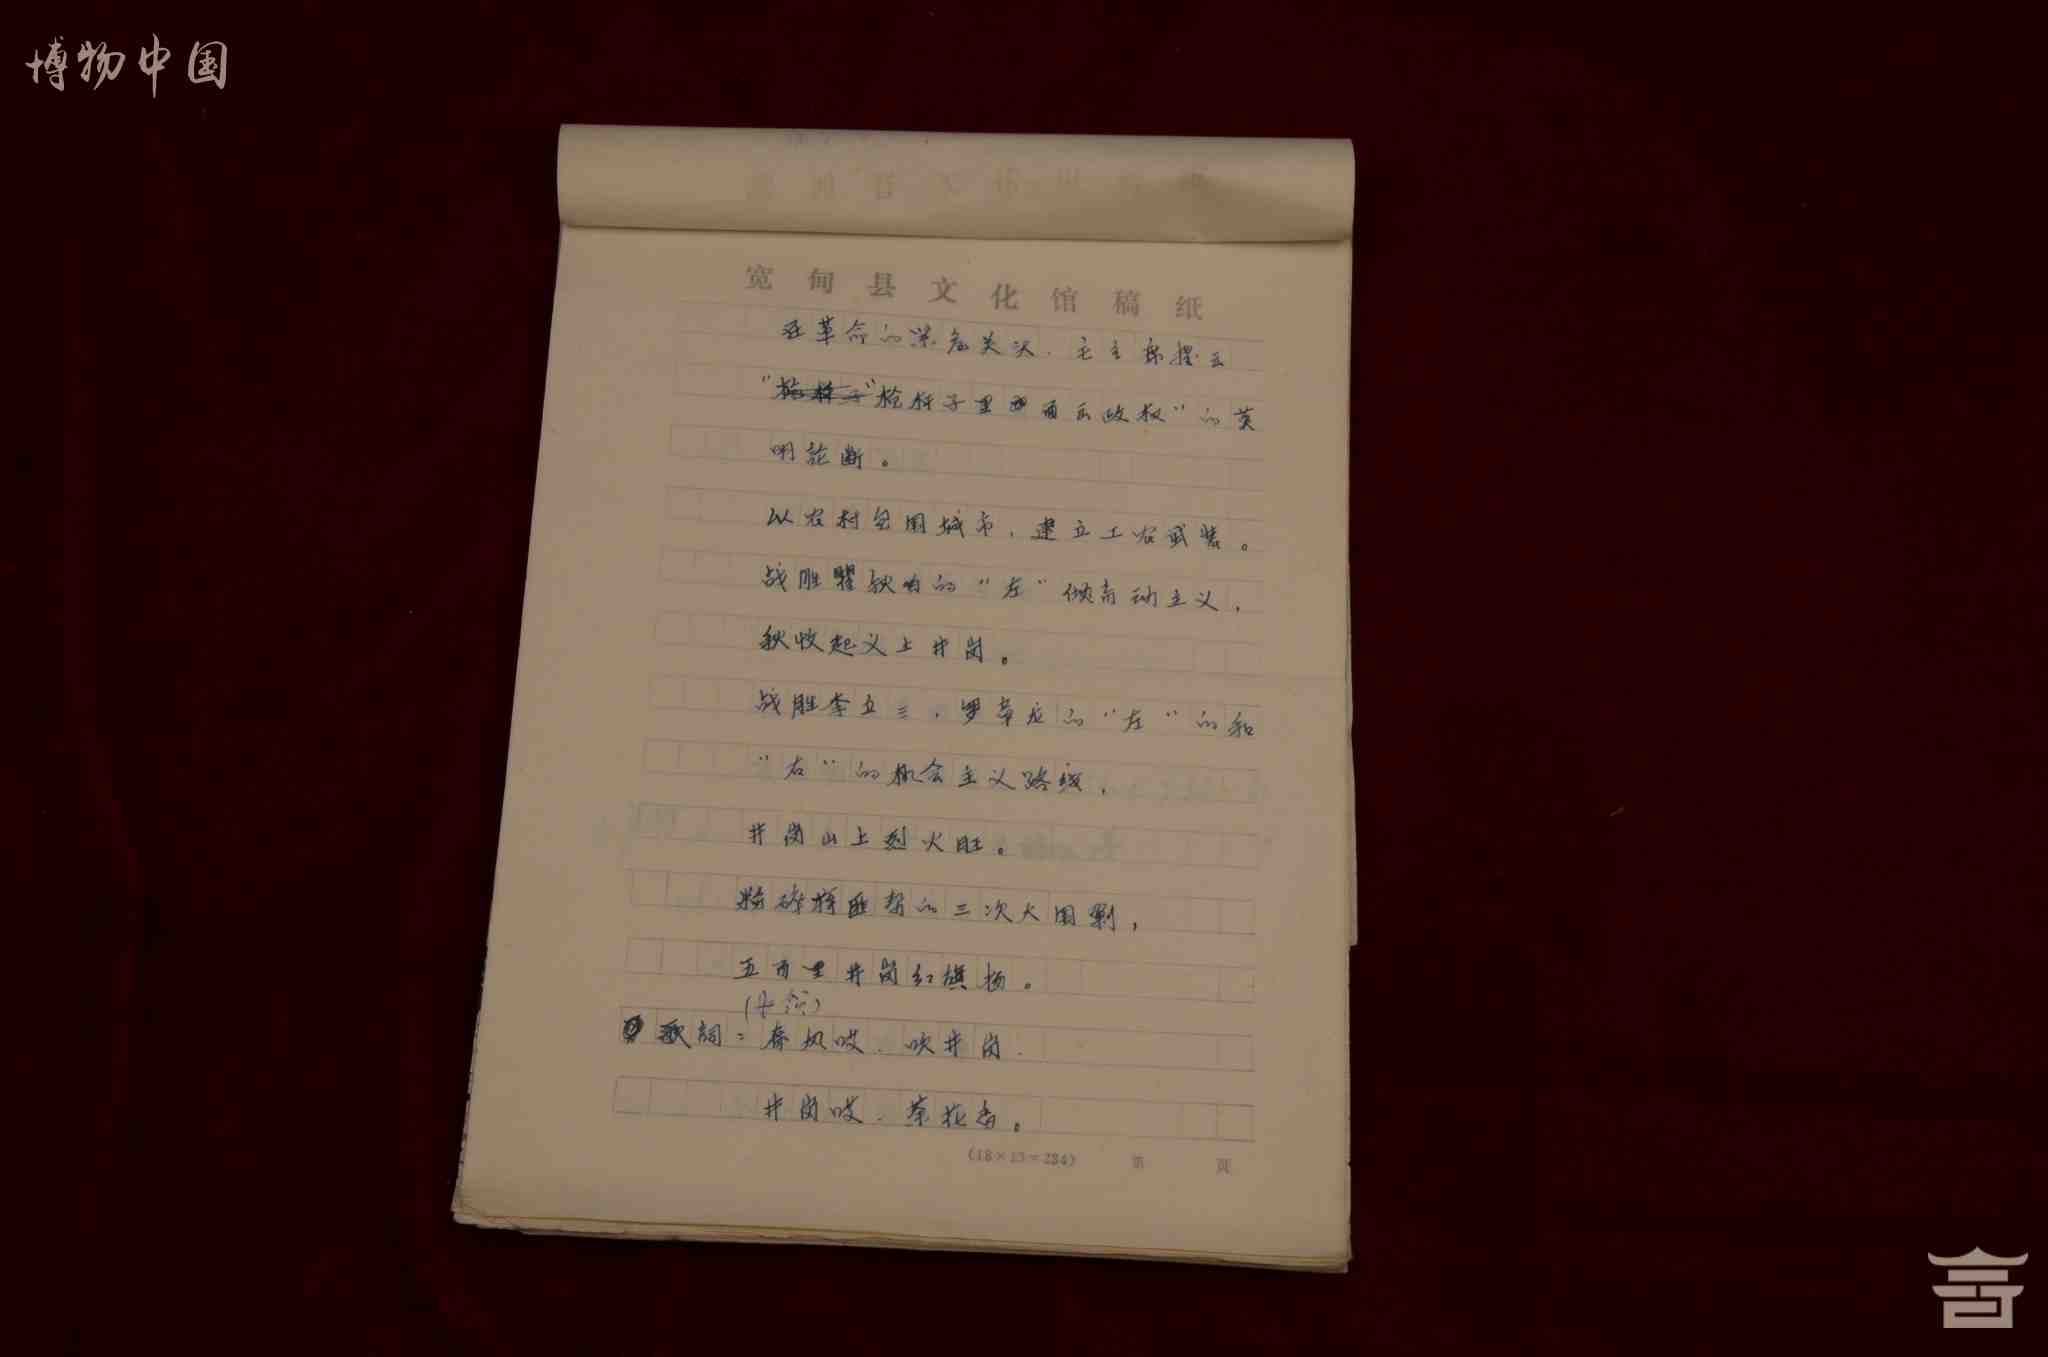 博物中国
宽甸县文化馆稿纸
在革命的深危关头.毛主席提出
"枪杆子"枪杆子里面出政权"的英
明論断。
以农村包围城市,建立工农武装。
战胜瞿秋白的"左"倾盲动主义,
秋收起义上井岗。
战胜李立三,罗章龙的"左"的和
"右"的机会主义路线,
井岗山上烈火旺。
粉碎蒋匪帮的三次大围剿,
五百里井岗红旗扬。
歌詞:春风哎.吹井岗.
井岗哎.茶花香。
(18×13=234) 第 页